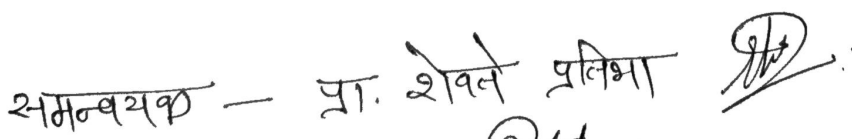 समन्वयक — प्रा. शेवले प्रतिभा